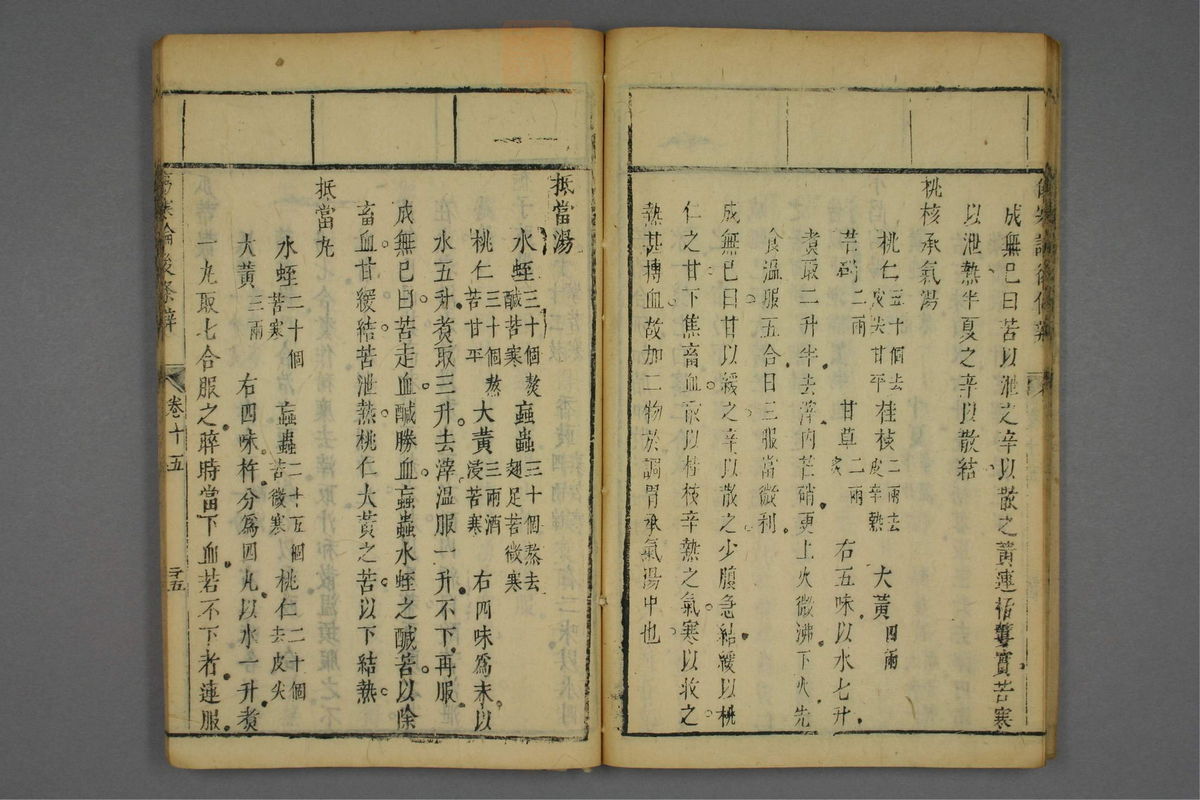 成無己曰苦以泄之辛以散之黄連栝蔞實苦寒
以泄熱半夏之辛以散結
桃核承氣湯
桃仁五十個去皮尖甘平 桂枝二兩去皮辛熱 大黄四兩
芒硝二兩 甘草二兩炙 右五味以水七升
煮取二升半去滓內芒硝更上火微沸下火先
食溫服五合日三服當微利
成無己曰甘以緩之辛以散之少腹急結緩以桃
仁之甘下焦畜血散以桂枝辛熱之氣寒以收之
熱甚搏血故加二物於調胃承氣湯中也
抵當湯
水蛭三十個熬鹹苦寒 䖟蟲三十個熬去翅足苦微寒
桃仁三十個熬苦甘平 大黄三兩酒浸苦寒 右四味爲末以
水五升煮取三升去滓溫服一升不下再服
成無己曰苦走血鹹勝血䖟蟲水蛭之鹹苦以除
畜血甘緩結苦泄熱桃仁大黄之苦以下結熱
抵當丸
水蛭二十個苦寒 䖟蟲二十五個苦微寒 桃仁二十個去皮尖
大黄三兩 右四味杵分爲四丸以水一升煮
一丸取七合服之晬時當下血若不下者連服
傷寒論後條辨 卷十五 二十五